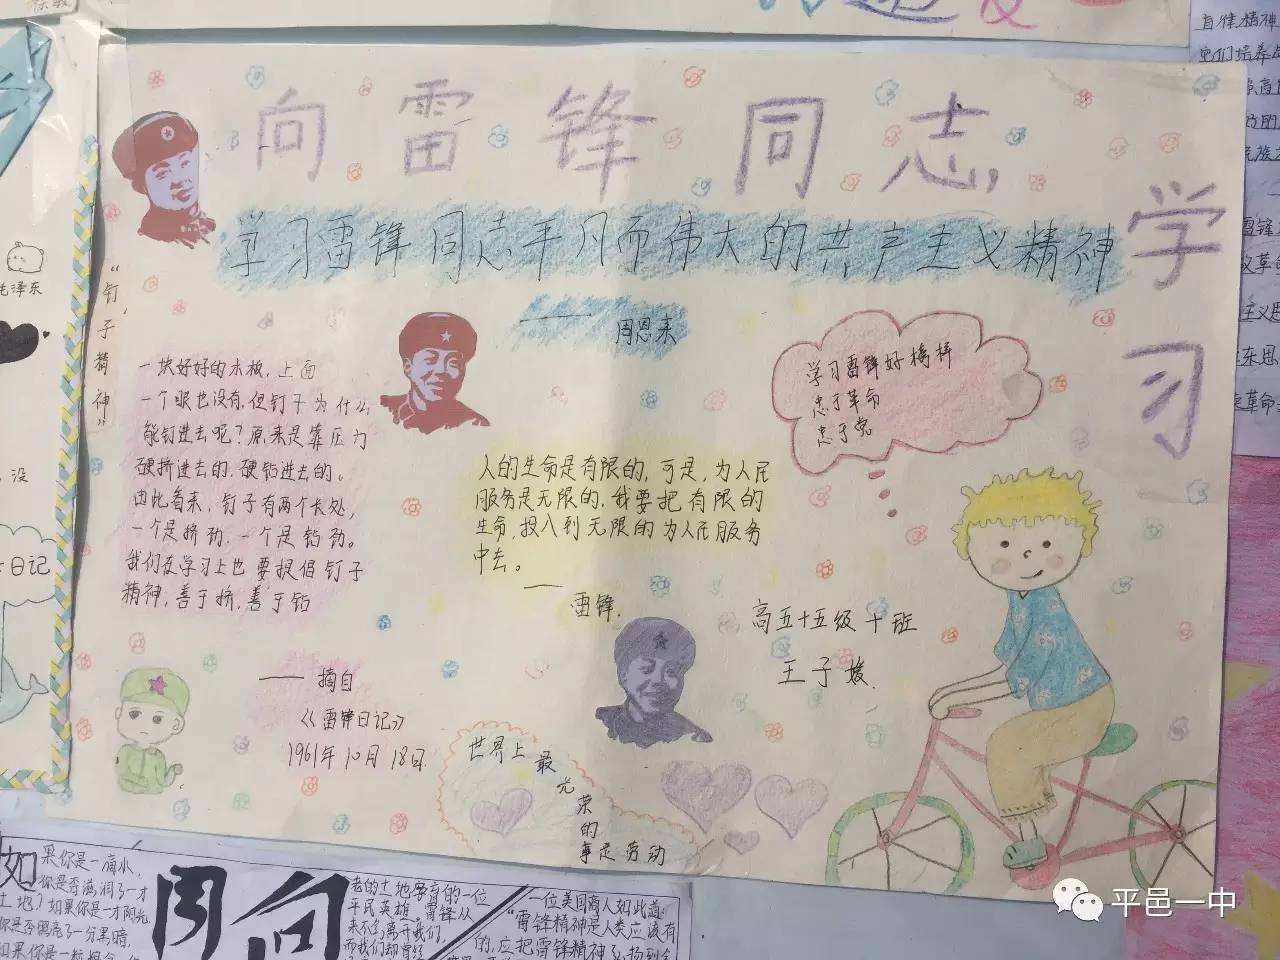 向雷锋同志学习
学习雷锋同志平凡而伟大的共产主义精神
——周恩来
“钉子精神”
一块好好的木板，上面
一个眼也没有，但钉子为什么
能钉进去呢？原来是靠压力
硬挤进去的，硬钻进去的。
由此看来，钉子有两个长处，
一个是挤劲，一个是钻劲。
我们在学习上也要提倡钉子
精神，善于挤，善于钻
——摘自
《雷锋日记》
1961年10月18日
人的生命是有限的，可是，为人民
服务是无限的，我要把有限的
生命，投入到无限的为人民服务
中去。
——雷锋.
学习雷锋好榜样
忠于革命
忠于党
高五十五级十班
王子媛
世界上最光荣的事是劳动
毛泽东
没
日记
自律精神
雷锋
主义思
东思
如果你是一滴水，
你是否滋润了一寸
土地？如果你是一才阳光
你是否照亮了一分黑暗，
向
平民英雄雷锋从
未不离开我们，
一位美国商人如此道：
“雷锋精神是人类应该有
的，应把雷锋精神
平邑一中